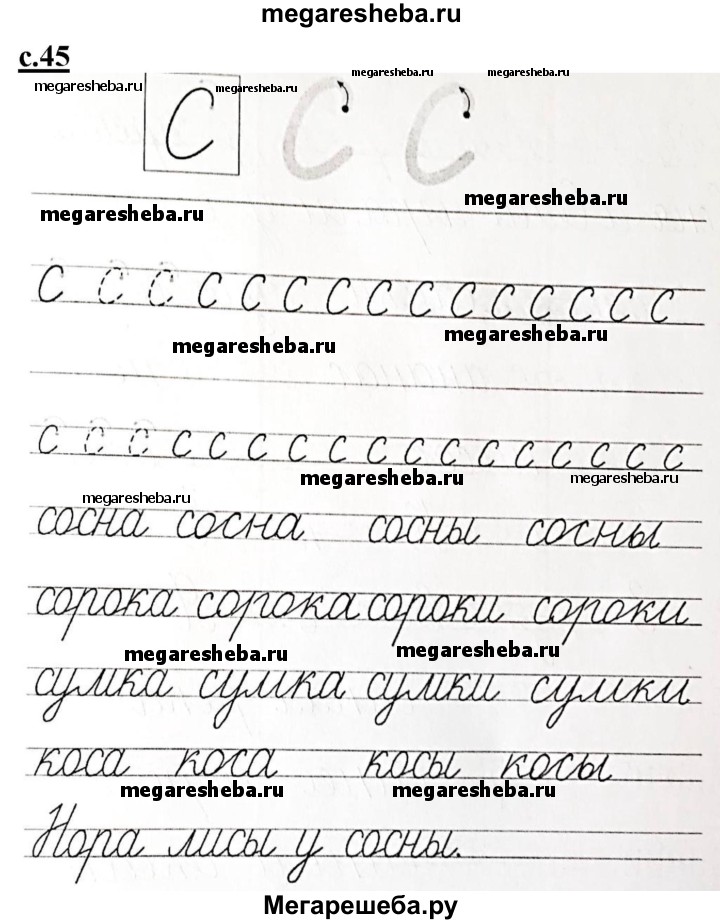 megaresheba.ru
с.45
megaresheba.ru megaresheba.ru megaresheba.ru megaresheba.ru
С С С
megaresheba.ru megaresheba.ru
С С С С С С С С С С С С С С С
megaresheba.ru megaresheba.ru
с с с с с с с с с с с с с с с с с
megaresheba.ru megaresheba.ru
megaresheba.ru
сосна сосна сосны сосны
сорока сорока сороки сороки
megaresheba.ru megaresheba.ru
сумка сумка сумки сумки
коса коса косы косы
megaresheba.ru megaresheba.ru
Нора лисы у сосны.
Мегарешеба.ру